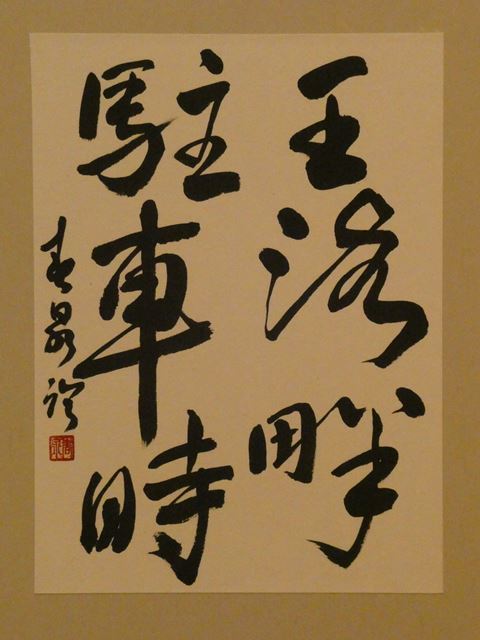 王洛畔
駐車時